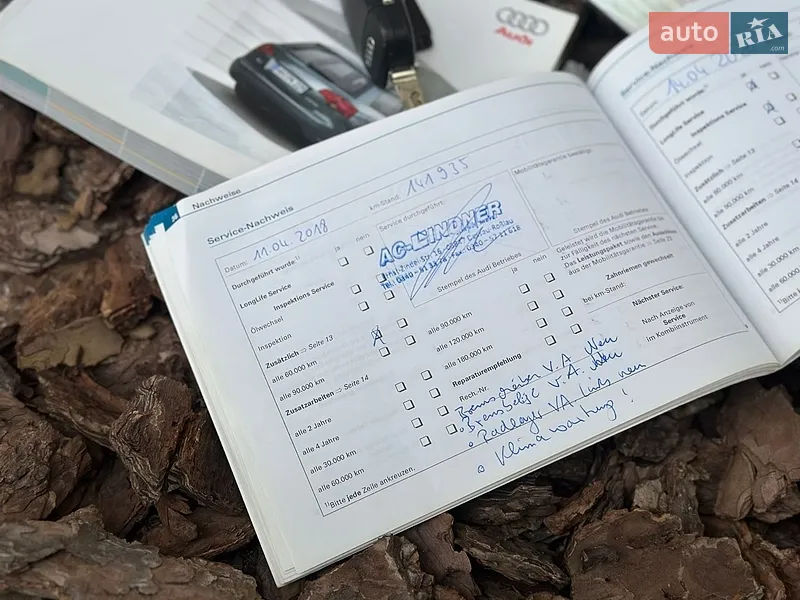 auto RIA.com
Audi
Nachweise
Service-Nachweis
Datum: 11.04.2018
km-Stand: 141935
Durchgeführt wurde:¹⁾
ja nein
LongLife Service
Inspektions Service
Ölwechsel
Inspektion
Zusätzlich ⇒ Seite 13
alle 60.000 km
alle 90.000 km
Zusatzarbeiten ⇒ Seite 14
alle 2 Jahre
alle 4 Jahre
alle 30.000 km
alle 60.000 km
¹⁾Bitte jede Zeile ankreuzen.
Service durchgeführt:
AC-LINDNER
Stempel des Audi Betriebes
ja nein
alle 90.000 km
alle 120.000 km
alle 180.000 km
Reparaturempfehlung
Rech.-Nr.
V.A. Neu
• Bremsbeläge V.A. Neu
• Radlager VA Links neu
• Klimawartung!
Mobilitätsgarantie bestätigt:
Stempel des Audi Betriebs
Geleistet wird die Mobilitätsgarantie bis
zur Fälligkeit des nächsten Service.
Das Leistungspaket sowie den
aus der Mobilitätsgarantie ⇒ Seite 25
Zahnriemen gewechselt
bei km-Stand:
Nächster Service:
Nach Anzeige von
Service
im Kombiinstrument
Service-Nachweis
Datum: 14.04
Durchgeführt wurde:
LongLife Service
Inspektions Service
Ölwechsel
Inspektion
Zusätzlich ⇒ Seite 13
alle 60.000 km
alle 90.000 km
Zusatzarbeiten ⇒ Seite 14
alle 2 Jahre
alle 4 Jahre
alle 30.000 km
alle 60.000 km
¹⁾Bitte